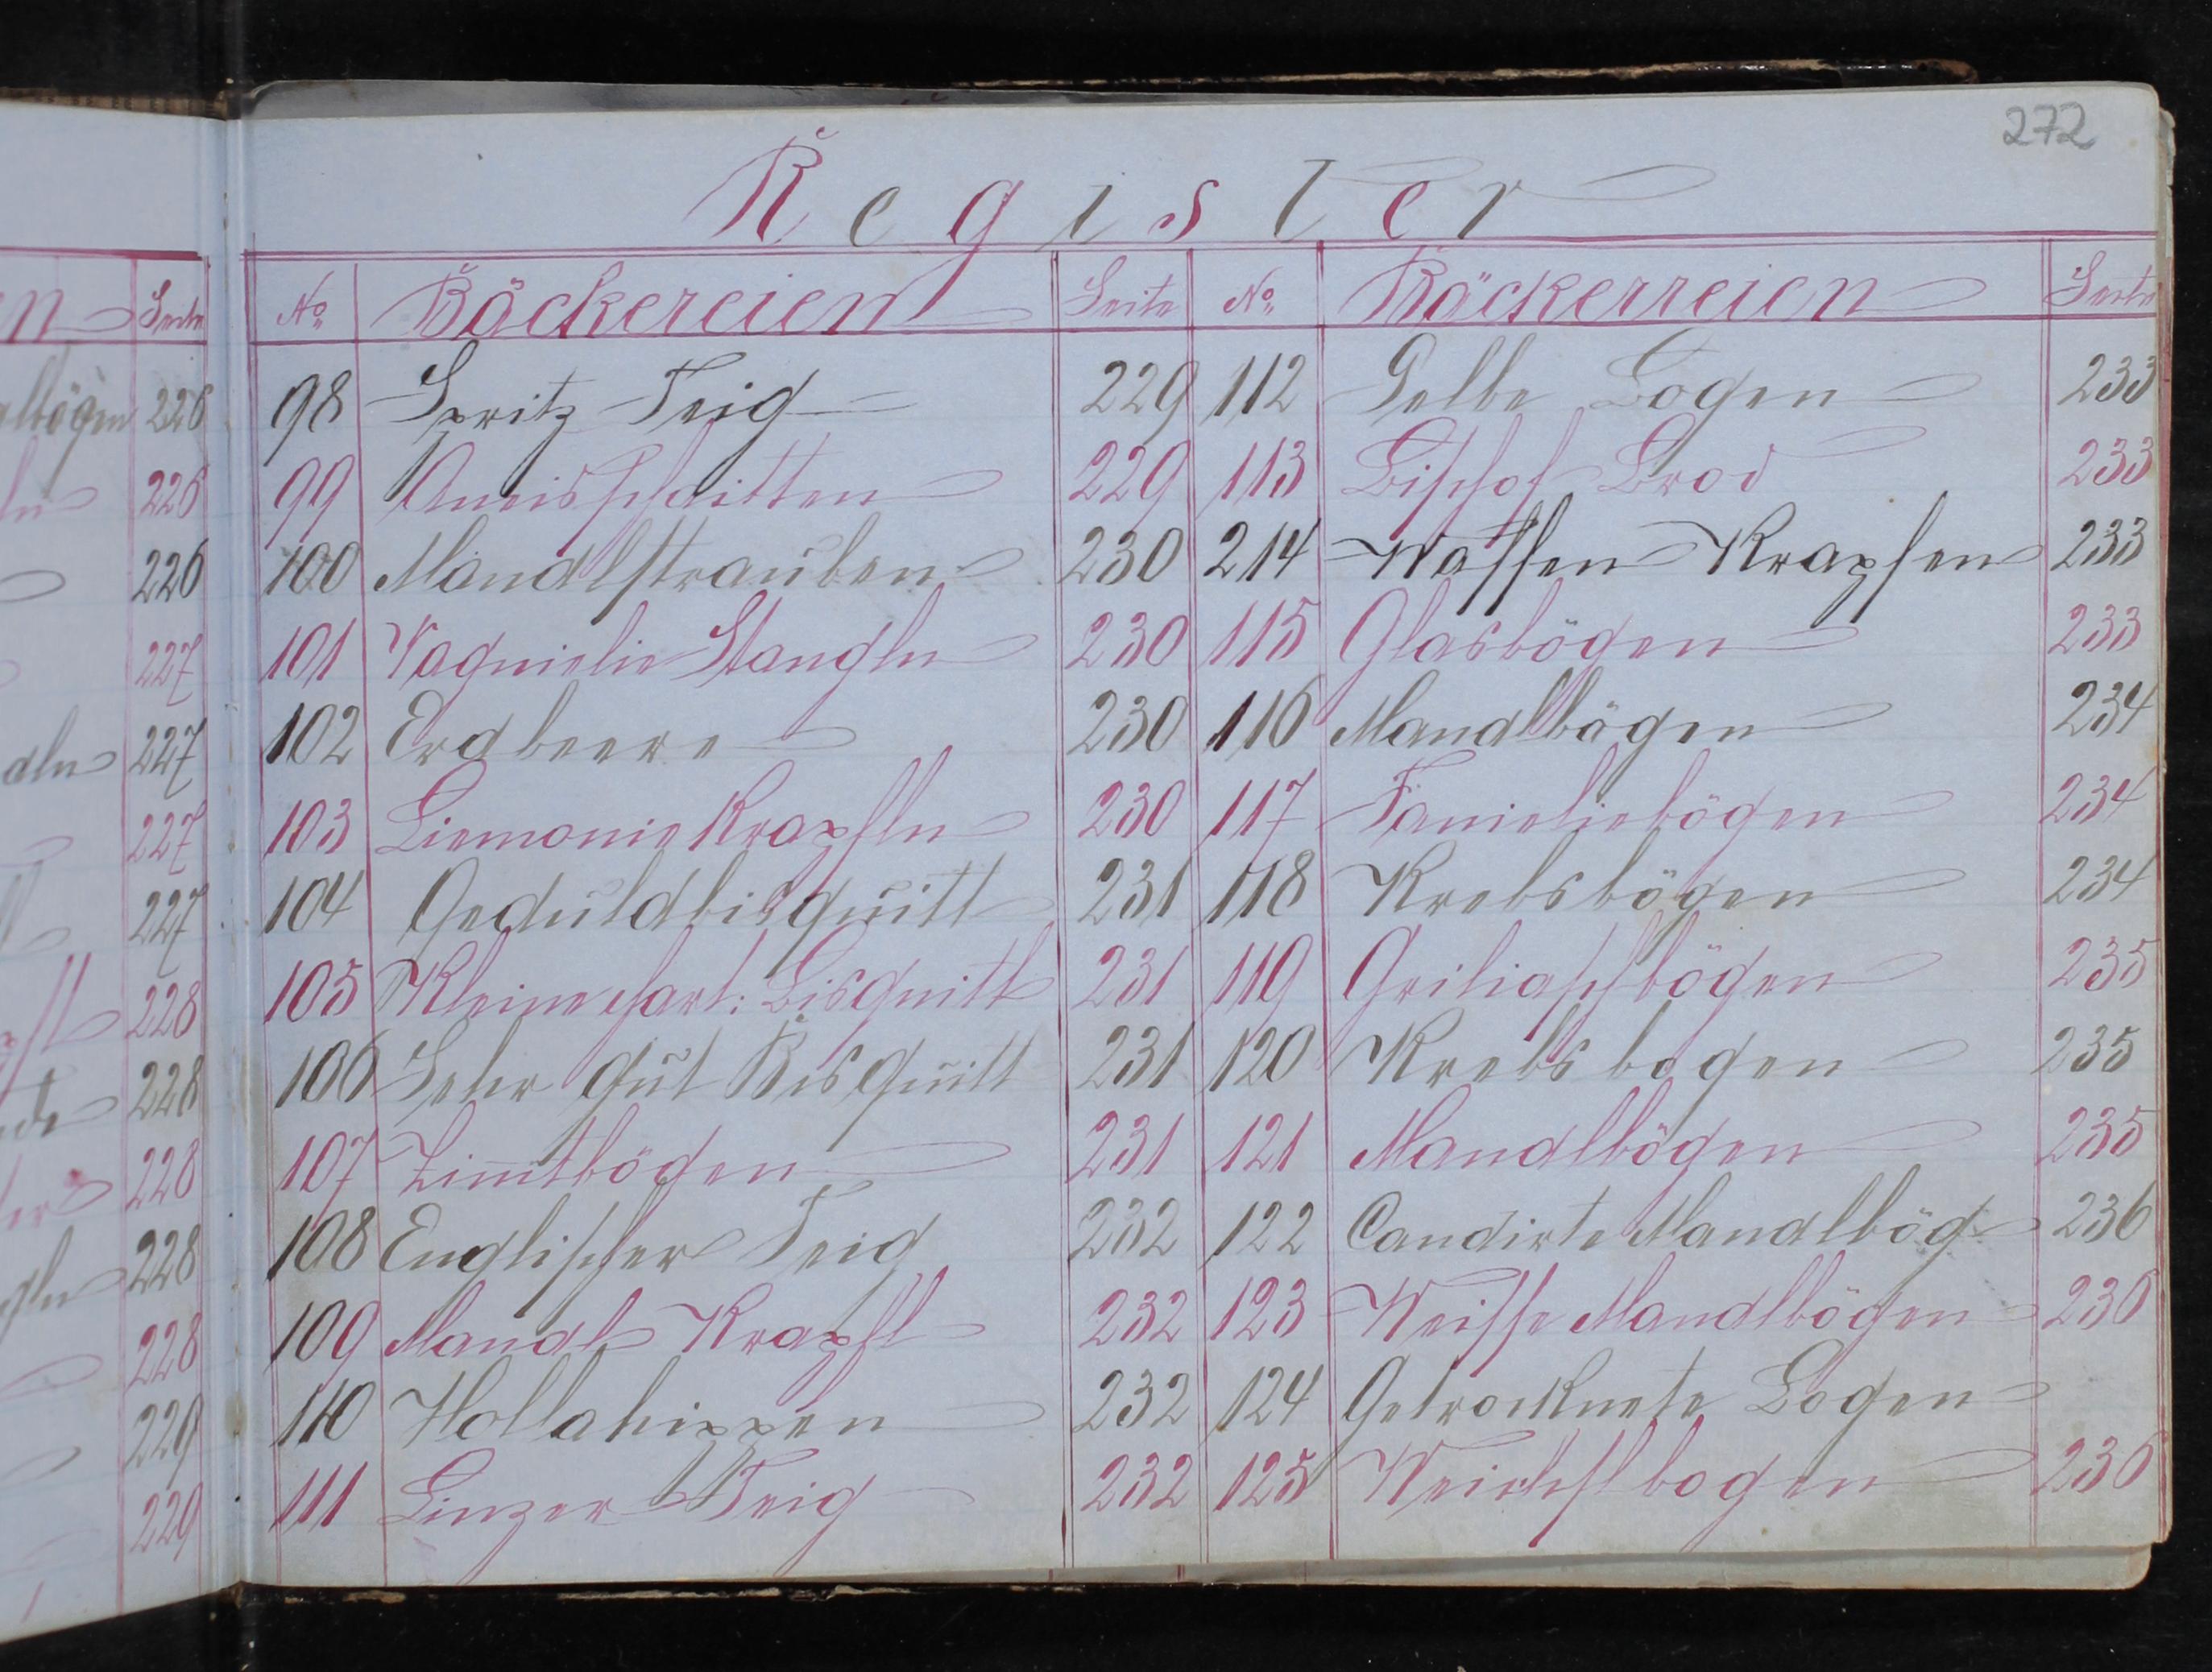 272
Register
No. Bäckereien Seite No. Bäckerreien Seite
98 Spritz Teig 229 112 Gelbe Bogen 233
99 Aneisschnitten 229 113 Bischof Brod 233
100 Mandlstrauben 230 214 Waffen Krapfen 233
101 Vagnielie Stangln 230 115 Glasbögen 233
102 Erdbeere 230 116 Mandlbögen 234
103 Liemonie Krapfln 230 117 Fanieliebögen 234
104 Geduldbisquitt 231 118 Krebsbögen 234
105 Kleine part: Bisquitt 231 119 Griliaschbögen 235
106 Sehr gut Bisquitt 231 120 Krebsbogen 235
107 Zimtbögen 231 121 Mandlbögen 235
108 Englischer Teig 232 122 Candirte Mandlbög 236
109 Mandl Krapfl 232 123 Weisse Mandlbögen 236
110 Hollahippen 232 124 Getrocknete Bogen
111 Linzer Teig 232 125 Weichslbogen 236
n Seite
lbögen 226
ln 226
226
227
dln 227
227
227
228
228
228
gln 228
228
229
229